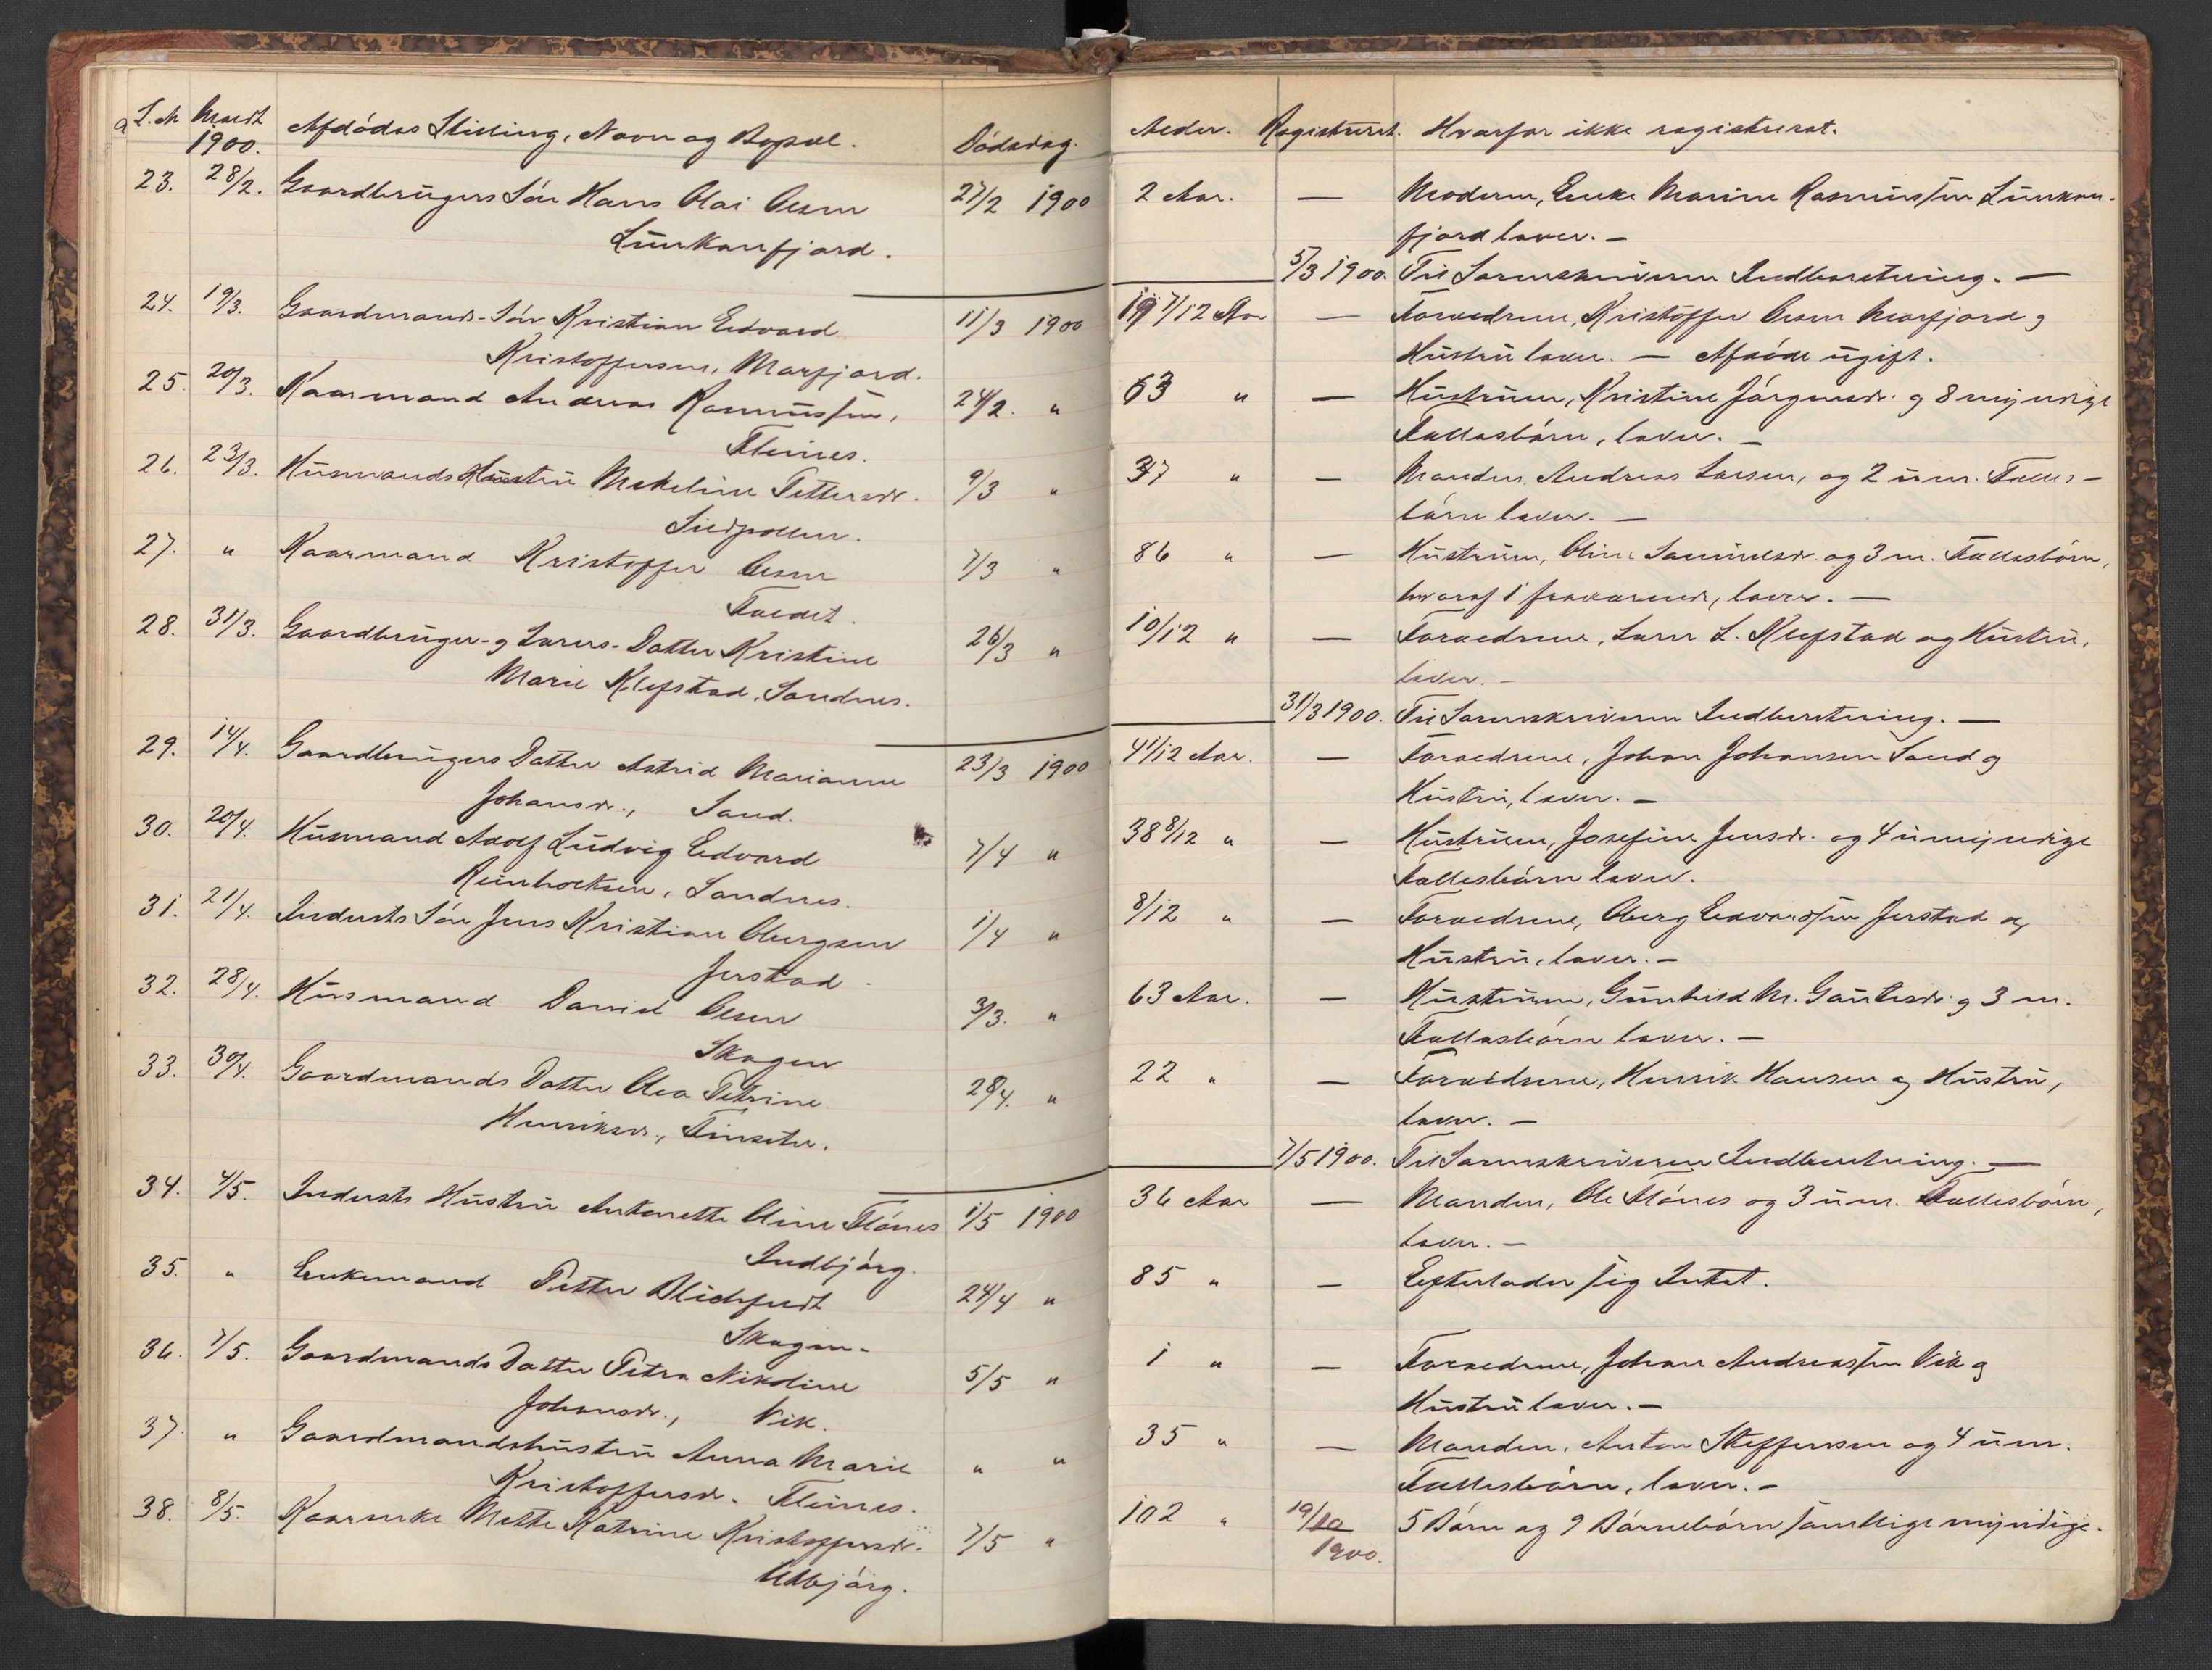 L. N Meldt 1900. Afdødes Stilling, Navn og Bopæl. Dødsdag. Alder. Registreret. Hvorfor ikke registreret.
23. 28/2. Gaardbrugers Søn Hans Olai Olsen 27/2 1900 2 Aar. — Moderen, Enke Marine Rasmussen Lunkan-
Lunkanfjord. fjord lever. —
5/3 1900. Til Sorenskriveren Indberetning. —
24. 19/3. Gaardmands-Søn Kristian Edvard 11/3 1900 19 7/12 Aar — Forældrene, Kristoffer Olsen Morfjord og
Kristoffersen, Morfjord. Hustru lever. — Afdøde ugift.
25. 20/3. Kaarmand Andreas Rasmussen, 24/2. " 63 " — Hustruen, Kristine Jørgensdr. og 8 myndige
Fleines. Fællesbørn, lever. —
26. 23/3. Husmands Hustru Mekeline Pettersdr. 9/3 " 37 " — Manden, Andreas Larsen, og 2 um. Fælles-
Sildpollen. børn lever. —
27. " Kaarmand Kristoffer Olsen 7/3 " 86 " — Hustruen, Oline Samuelsdr. og 3 m. Fællesbørn,
Faldet. hvoraf 1 fraværende, lever. —
28. 31/3. Gaardbruger- og Lærers-Datter Kristine 26/3 " 10/12 " — Forældrene, Lærer L. Klefstad og Hustru,
Marie Klefstad, Sandnes. lever. —
31/3 1900. Til Sorenskriveren Indberetning. —
29. 14/4. Gaardbrugers Datter Astrid Marianne 23/3 1900 4 1/12 Aar. — Forældrene, Johan Johansen Sand og
Johansdr., Sand. Hustru, lever. —
30. 20/4. Husmand Adolf Ludvig Edvard 7/4 " 38 8/12 " — Hustruen, Josefine Jensdr. og 4 umyndige
Reinholtsen, Sandnes. Fællesbørn lever.
31. 21/4. Inderts Søn Jens Kristian Obergsen 1/4 " 8/12 " — Forældrene, Oberg Edvardsen Jerstad og
Jerstad. Hustru, lever. —
32. 28/4. Husmand Daniel Olsen 3/3. " 63 Aar. — Hustruen, Gunhild M. Gautesdr. og 3 m.
Skogen Fællesbørn lever. —
33. 30/4. Gaardmands Datter Olea Petrine 28/4. " 22 " — Forældrene, Henrik Hansen og Hustru,
Henriksdr., Finsæter. lever. —
7/5 1900. Til Sorenskriveren Indberetning. —
34. 4/5. Inderts Hustru Antonette Oline Flønes 1/5 1900 36 Aar — Manden, Ole Flønes og 3 um. Fællesbørn,
Indbjørg. lever. —
35. " Enkemand Petter Blichfeldt 24/4 " 85 " — Efterlader sig Intet.
Skogen.
36. 7/5. Gaardmands Datter Petra Nikoline 5/5 " 1 " — Forældrene, Johan Andreassen Vik og
Johansdr., Vik. Hustru lever. —
37. " Gaardmandshustru Anna Marie " " 35 " — Manden, Anton Steffensen og 4 um.
Kristoffersdr. Fleines. Fællesbørn, lever. —
38. 8/5. Kaarenke Mette Katrine Kristoffersdr. 7/5 " 102 " 19/10 1900. 5 Børn og 9 Børnebørn samtlige myndige.
Udbjørg.